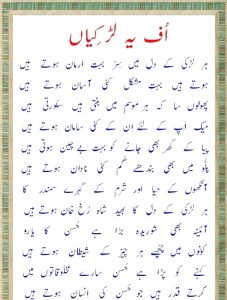 اُف یہ لڑکیاں
ہر لڑکی کے دل میں سز بہت ارمان ہوتے ہیں
ہوتے ہیں بہت مشکل کئی آسان ہوتے ہیں
پھولوں سا کہ ہر موسم میں بنتی ہیں سنورتی ہیں
میک اَپ کے لئے ان کے کئی سامان ہوتے ہیں
پیا کے گھر بھی جانے کو بہت بے چین ہوتی ہیں
پلو میں بھی بندھے غم کئی نادان ہوتے ہیں
آنکھوں کے حیا اور شرم کے گہرے سمندر کا
ہر لڑکی کے دل کا بھید شاہ رُخ خان ہوتے ہیں
آئینہ بھی شوریدہ بڑا ہے حُسن کا یارو
کونوں میں چھپے ہر چیز کے شیطان ہوتے ہیں
کہنے کو بڑا ہے حُسن سارے مخلوقاتوں میں
کرتے قدر ہیں جو حُسن کی انسان ہوتے ہیں